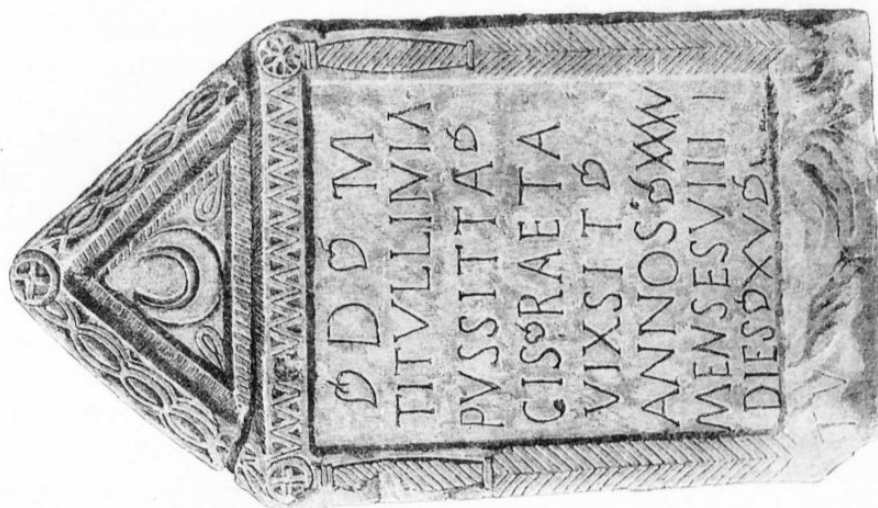 ❦ D ❦ M
TITVLLINIA
PVSSITTA ❦
CIS ❦ RAETA
VIXSIT ❦
ANNOS ❦ XXXV
MENSES VIII
DIES ❦ XV ❦